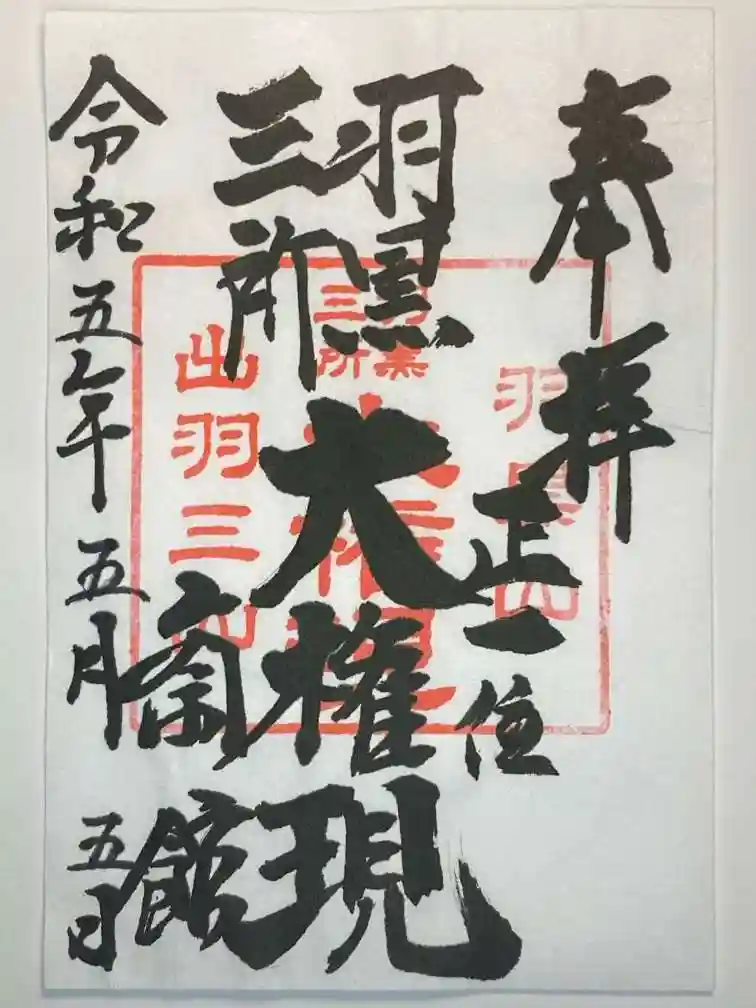 奉拝
正一位
羽黒三所大権現
斎館
令和五年五月五日
羽黒山
羽黒三所大権現
出羽三山